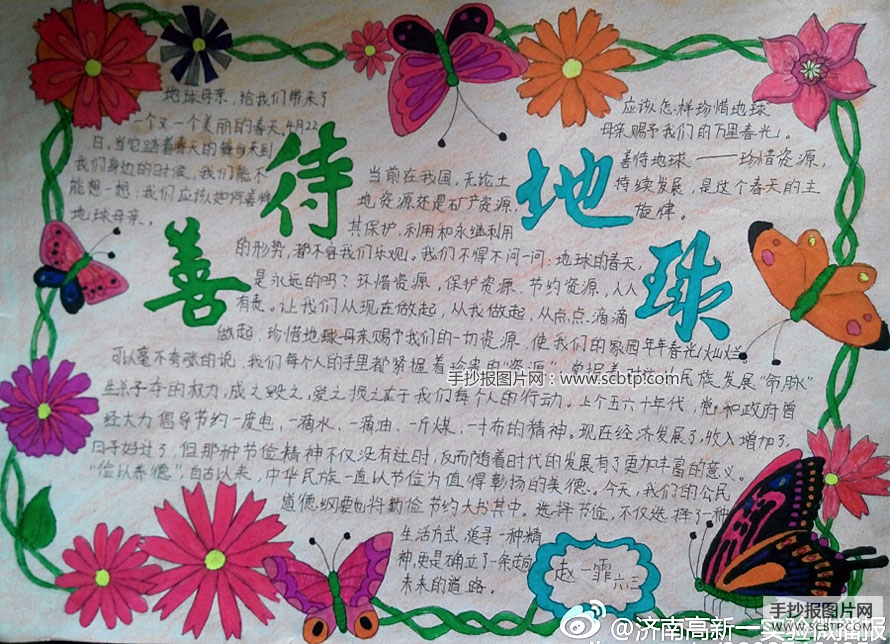 善待地球
地球母亲，给我们带来了
一个又一个美丽的春天，4月22
日，当它踏着春天的舞步来到
我们身边的时候，我们能不
能想一想：我们应该如何善待
地球母亲，
应该怎样珍惜地球
母亲赐予我们的万里春光」。
善待地球——珍惜资源，
持续发展，是这个春天的主
旋律。
当前在我国，无论土
地资源还是矿产资源，
其保护、利用和永继利用
的形势，都不容我们乐观。我们不得不问一问：地球的春天，
是永远的吗？珍惜资源，保护资源、节约资源，人人
有责。让我们从现在做起，从我做起，从点点滴滴
做起，珍惜地球母亲赐予我们的一切资源，使我们的家园年年春光灿烂。
可以毫不夸张的说，我们每个人的手里都紧握着
民族发展"命脉"
生杀予夺的权力，成之毁之，爱之损之在于我们每个人的行动。上个五六十年代，党和政府曾
经大力倡导节约一度电，一滴水、一滴油、一斤煤、一寸布的精神。现在经济发展了，收入增加了，
日子好过了，但那种节俭精神不仅没有过时，反而随着时代的发展有了更加丰富的意义。
"俭以养德"，自古以来，中华民族一直以节俭为值得彰扬的美德。今天，我们的公民
道德纲要也将勤俭节约大书其中。选择节俭，不仅选择了一种
生活方式，追寻一种精
神，更是确立了一条走向
未来的道路。
赵一霏 六、三
手抄报图片网：www.scbtp.com
手抄报图片网
WWW.SCBTP.COM
@济南高新一实验微播报